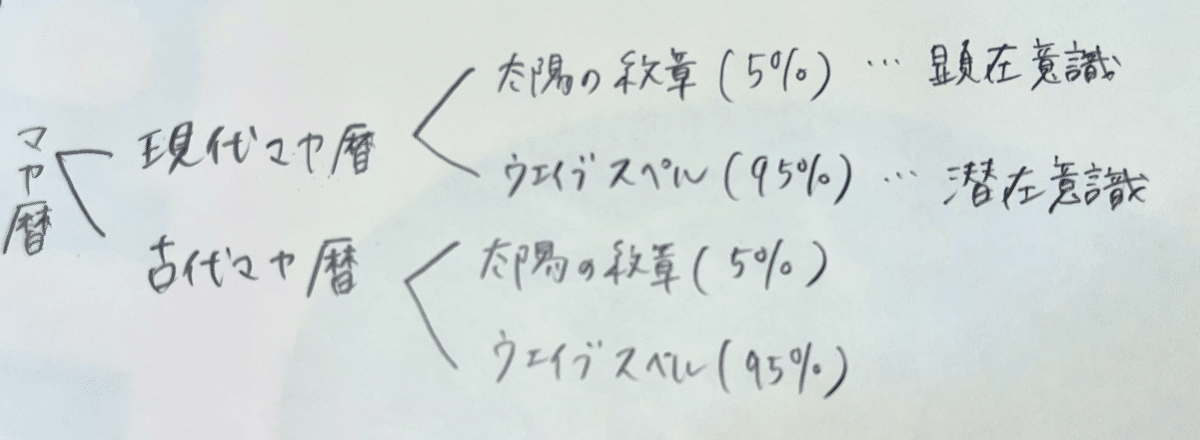 マヤ暦
現代マヤ暦
太陽の紋章(5%) … 顕在意識
ウエイブスペル(95%) … 潜在意識
古代マヤ暦
太陽の紋章(5%)
ウエイブスペル(95%)